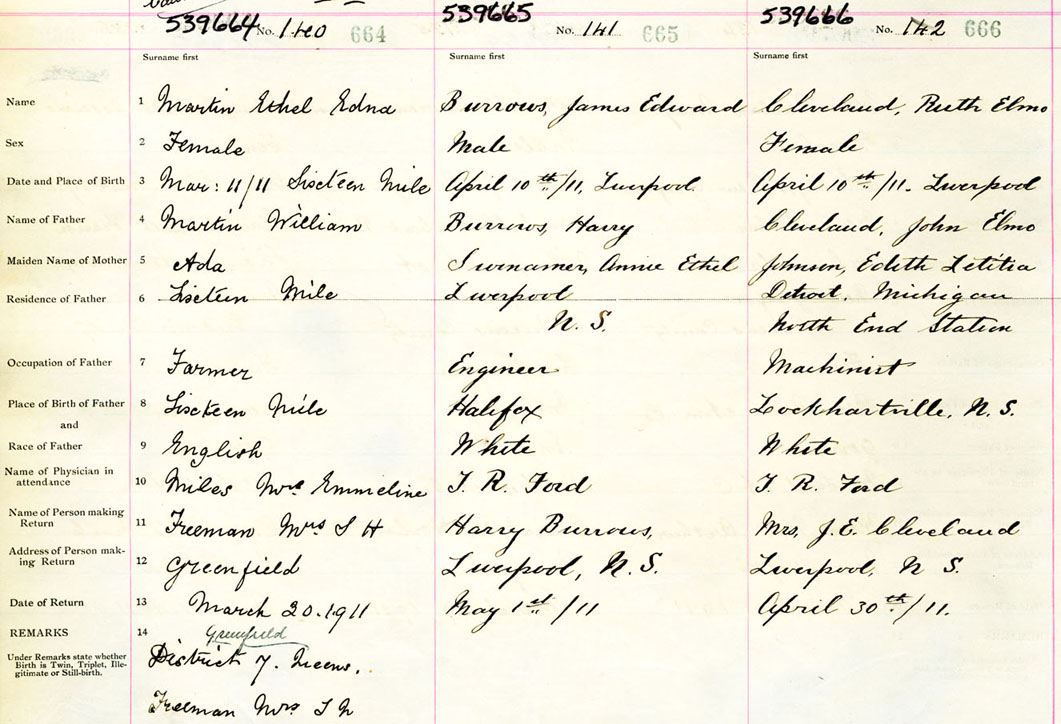 539664 No. 140 664
539665 No. 141 665
539666 No. 142 666
Surname first Surname first Surname first
Name 1 Martin Ethel Edna Burrows, James Edward Cleveland, Ruth Elmo
Sex 2 Female Male Female
Date and Place of Birth 3 Mar: 11/11 Sixteen Mile April 10th/11, Liverpool April 10th/11. Liverpool
Name of Father 4 Martin William Burrows, Harry Cleveland, John Elmo
Maiden Name of Mother 5 Ada Swenamer, Annie Ethel Johnson, Edith Letitia
Residence of Father 6 Sixteen Mile Liverpool Detroit, Michigan
N. S. North End Station
Occupation of Father 7 Farmer Engineer Machinist
Place of Birth of Father 8 Sixteen Mile Halifax Lockhartville, N. S.
and
Race of Father 9 English White White
Name of Physician in attendance 10 Miles Mrs Emmeline T. R. Ford T. R. Ford
Name of Person making Return 11 Freeman Mrs S H Harry Burrows, Mrs, J. E. Cleveland
Address of Person making Return 12 Greenfield Liverpool, N. S. Liverpool, N S.
Date of Return 13 March 20. 1911 May 1st/11 April 30th/11.
REMARKS 14 Greenfield
Under Remarks state whether
Birth is Twin, Triplet, Ille-
gitimate or Still-birth.
District 7. Queens.
Freeman Mrs S